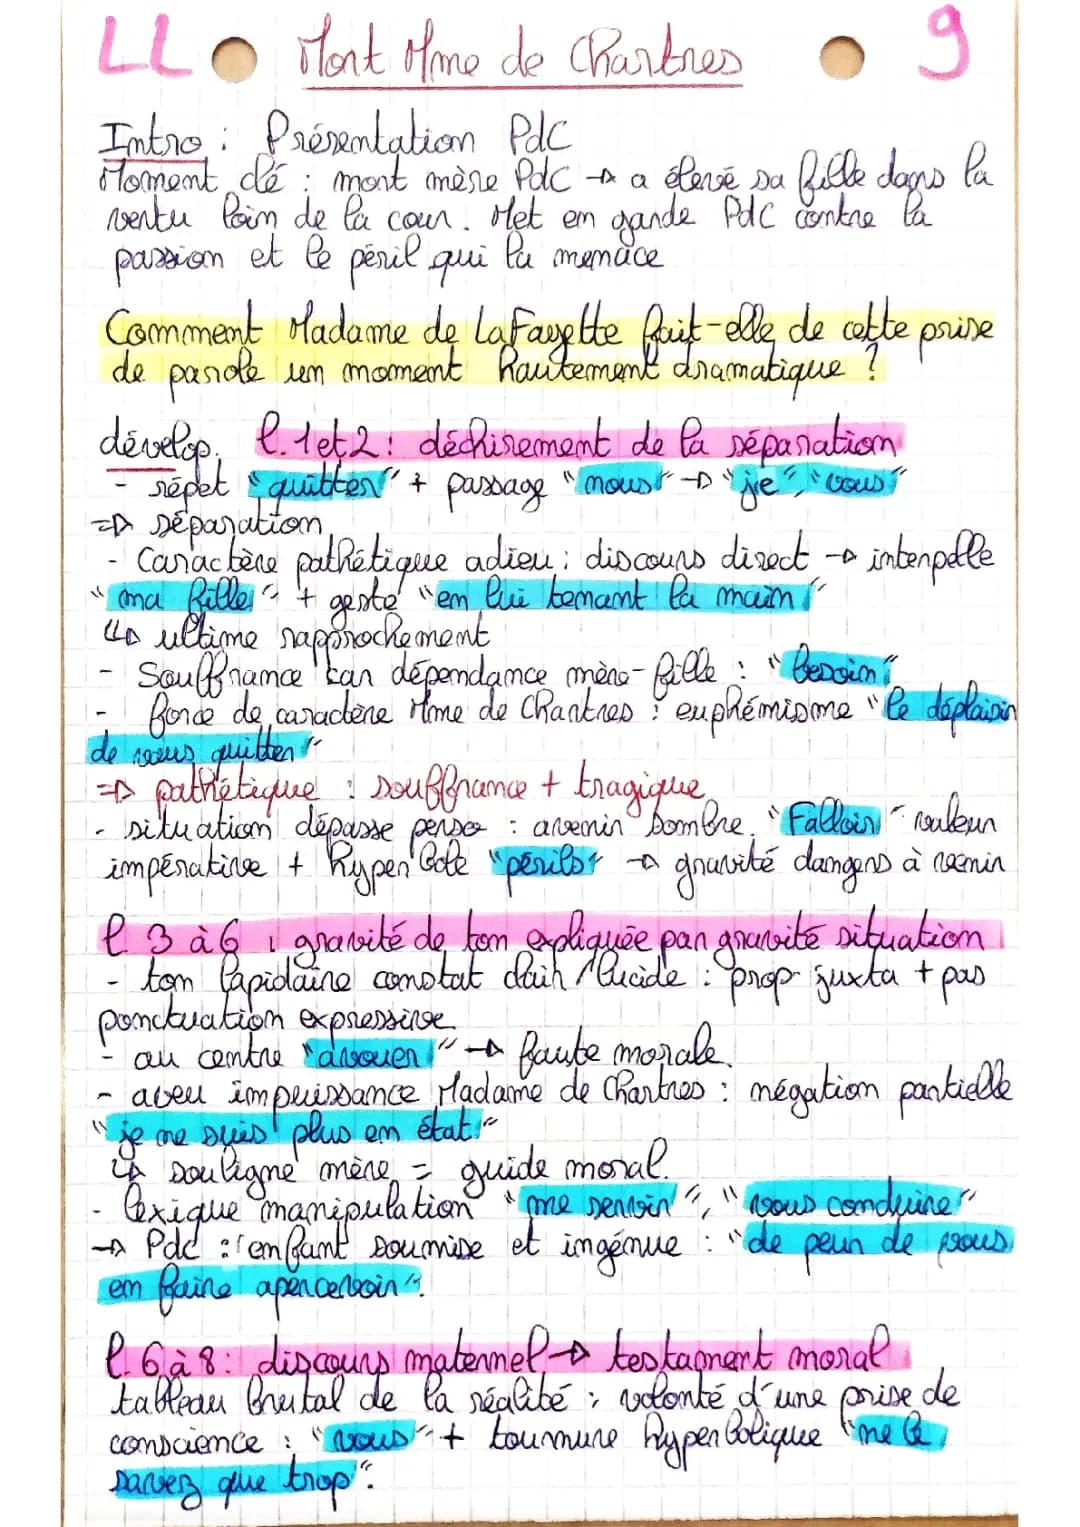 LL Mort Mme de Chartres 9
Intro : Présentation PdC
Moment clé : mort mère PdC → a élevé sa fille dans la
vertu loin de la cour. Met en garde PdC contre la
passion et le péril qui la menace
Comment Madame de LaFayette fait-elle de cette prise
de parole un moment hautement dramatique ?
dévelop. l. 1 et 2 : déchirement de la séparation
- répet "quitter" + passage "nous" → "je", "vous"
=> séparation
- Caractère pathétique adieu : discours direct → interpelle
"ma fille" + geste "en lui tenant la main"
↳ ultime rapprochement
- Souffrance car dépendance mère-fille : "besoin"
- force de caractère Mme de Chartres : euphémisme "le déplaisir
de vous quitter"
=> pathétique : souffrance + tragique
- situation dépasse perso : avenir sombre. "Falloir" valeur
impérative + hyperbole "périls" → gravité dangers à venir
l. 3 à 6 : gravité de ton expliquée par gravité situation
- ton lapidaire constat clair/lucide : prop juxta + pas
ponctuation expressive
- au centre "avouer" → faute morale.
- aveu impuissance Madame de Chartres : négation partielle
"je ne suis plus en état"
↳ souligne mère = guide moral.
- lexique manipulation "me servir", "vous conduire"
→ PdC : enfant soumise et ingénue : "de peur de vous
en faire apercevoir".
l. 6 à 8 : discours maternel → testament moral
tableau brutal de la réalité ; volonté d'une prise de
conscience : "vous" + tournure hyperbolique "ne le
savez que trop".